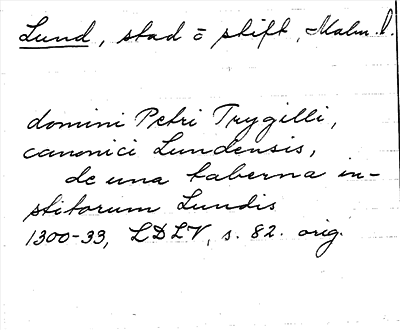 Lund, stad o stift, Malm. l.
domini Petri Trygilli,
canonici Lundensis,
de una taberna in-
stitorum Lundis
1300-33, LDLV, s. 82. orig.